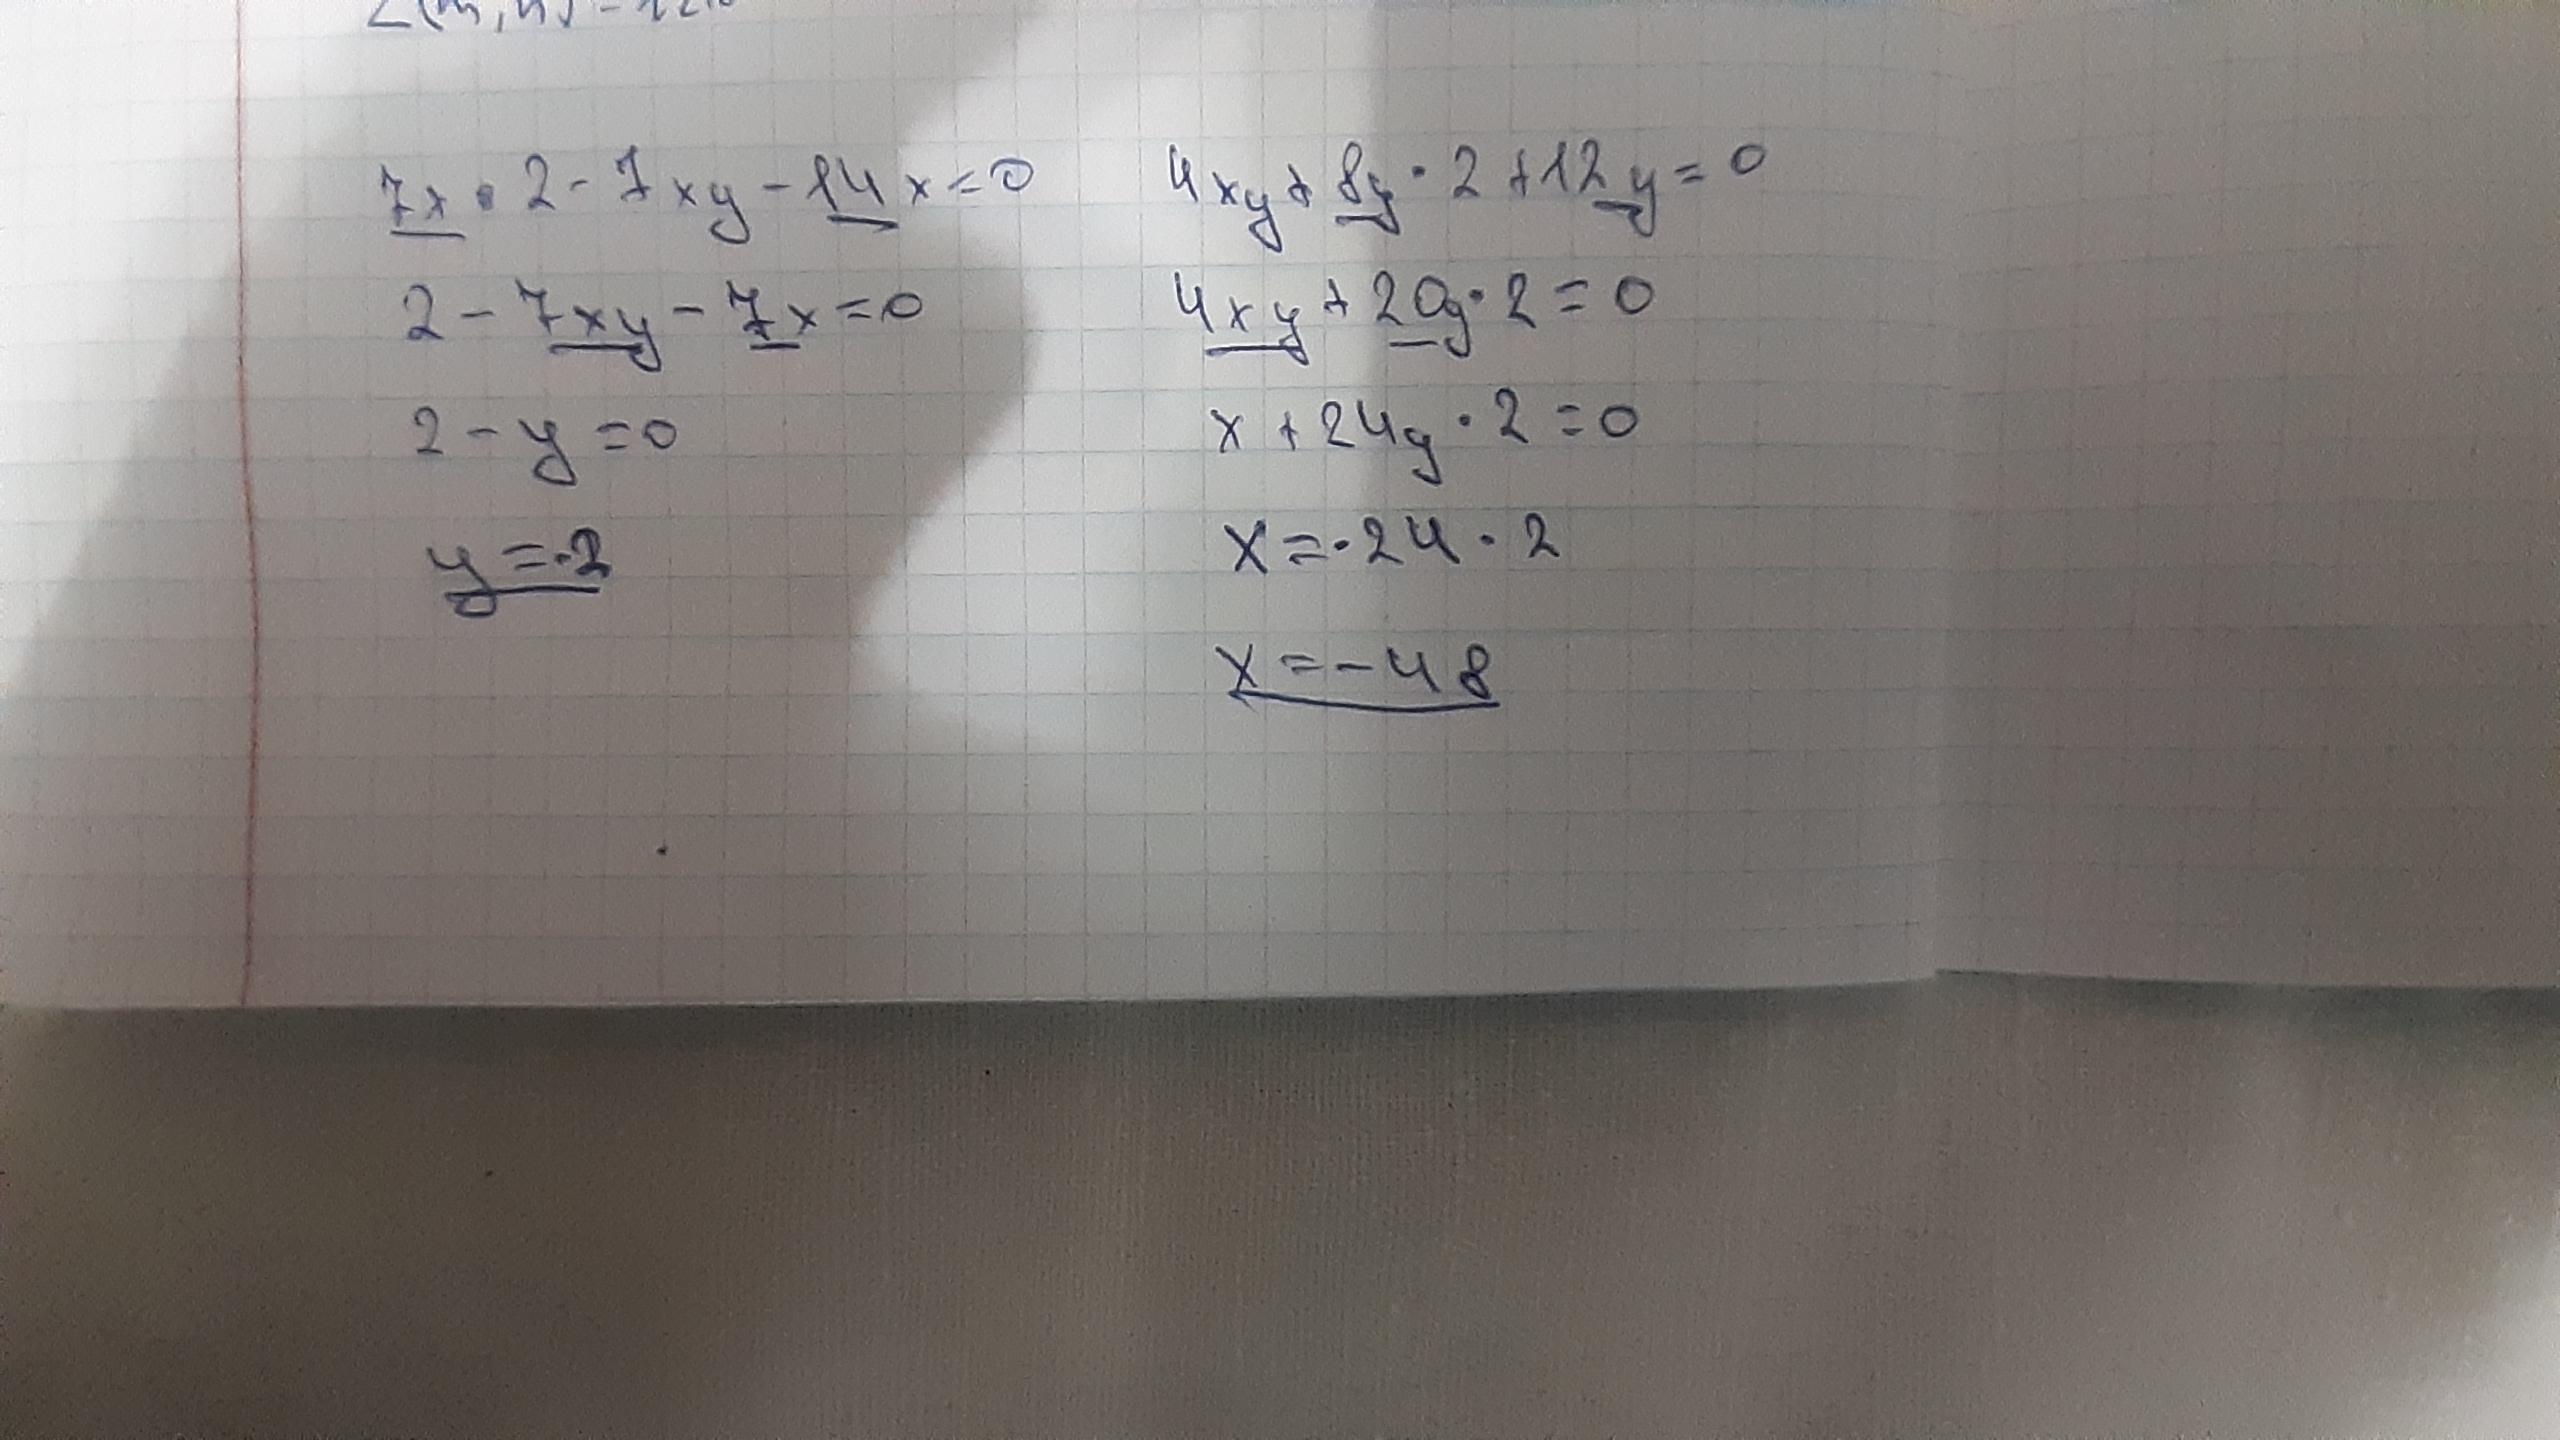 7x · 2 - 7xy - 14x = 0
2 - 7xy - 7x = 0
2 - y = 0
y = -2
4xy + 8y · 2 + 12y = 0
4xy + 20y · 2 = 0
x + 24y · 2 = 0
x = -24 · 2
x = -48